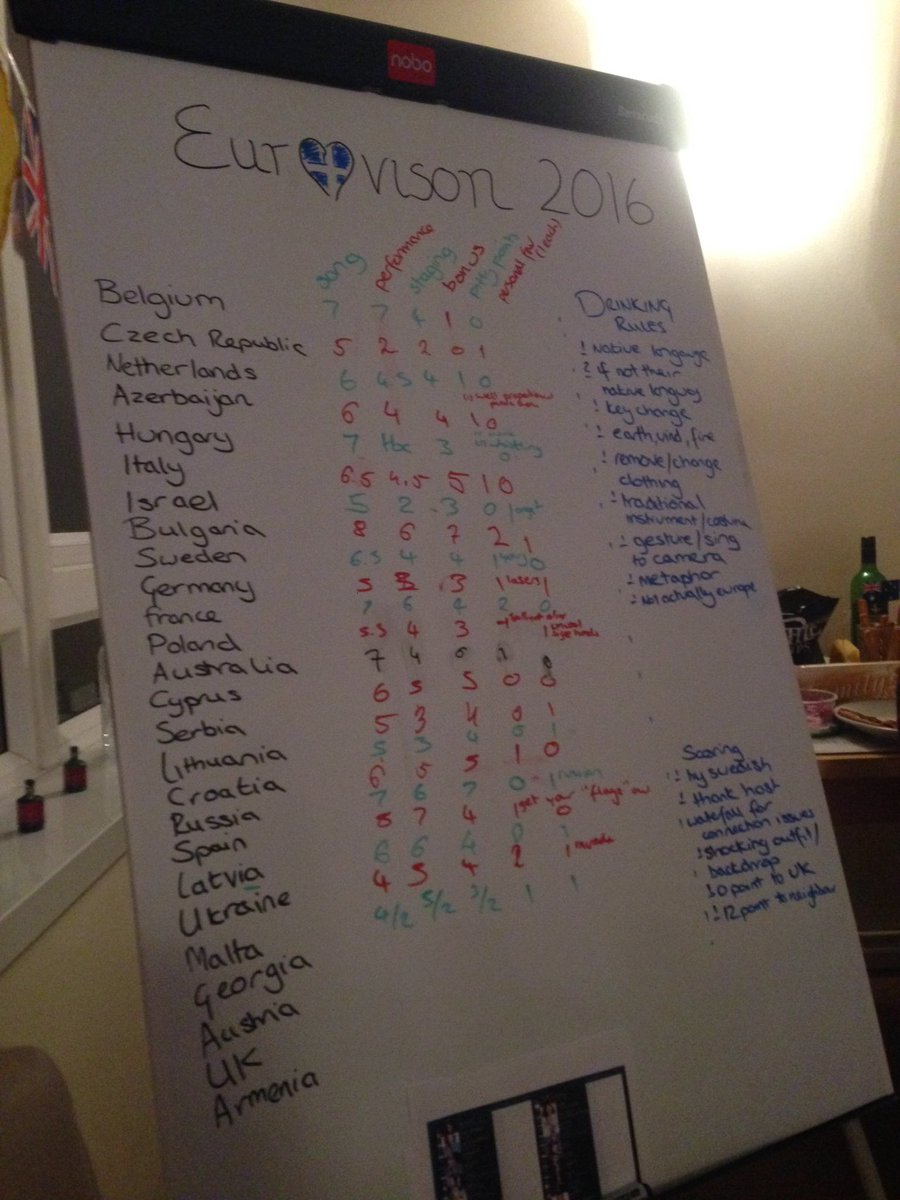 nobo
Eurovison 2016
song performance staging bonus petty points personal fav (1 each)
Belgium 7 7 4 1 0
Czech Republic 5 2 2 0 1
Netherlands 6 4.5 4 1 0
Azerbaijan 6 4 4 1 0
Hungary 7 tbc 3 0
Italy 6.5 4.5 5 1 0
Israel 5 2 .3 0 1
Bulgaria 8 6 7 2 1
Sweden 6.5 4 4 1 0
Germany 5 3 .3 1 lasers 1
france 7 6 4 2 0
Poland 5.5 4 3 -1 1
Australia 7 4 6
Cyprus 6 5 5 0 0
Serbia 5 3 4 0 1
Lithuania 5 3 4 0 1
Croatia 6 5 5 1 0
Russia 7 6 7 0 -1 russian
Spain 8 7 4 1 get your "flags" out 0
Latvia 6 6 4 0
Ukraine 4 5 4 2 1
Malta 4/2 5/2 3/2 1 1
Georgia
Austria
UK
Armenia
DRINKING
RULES
! Native longauge
2 if not their
native longuag
! key change
! earth, wind, fire
! remove/change
clothing
! traditional
instrument/costume
! gesture/sing
to camera
! metaphor
! Not actually europe
Scoring
! try swedish
! thank host
waterfall for
connection issues
! shocking outfit/
backdrop
! 0 point to UK
! 12 point to neighbour